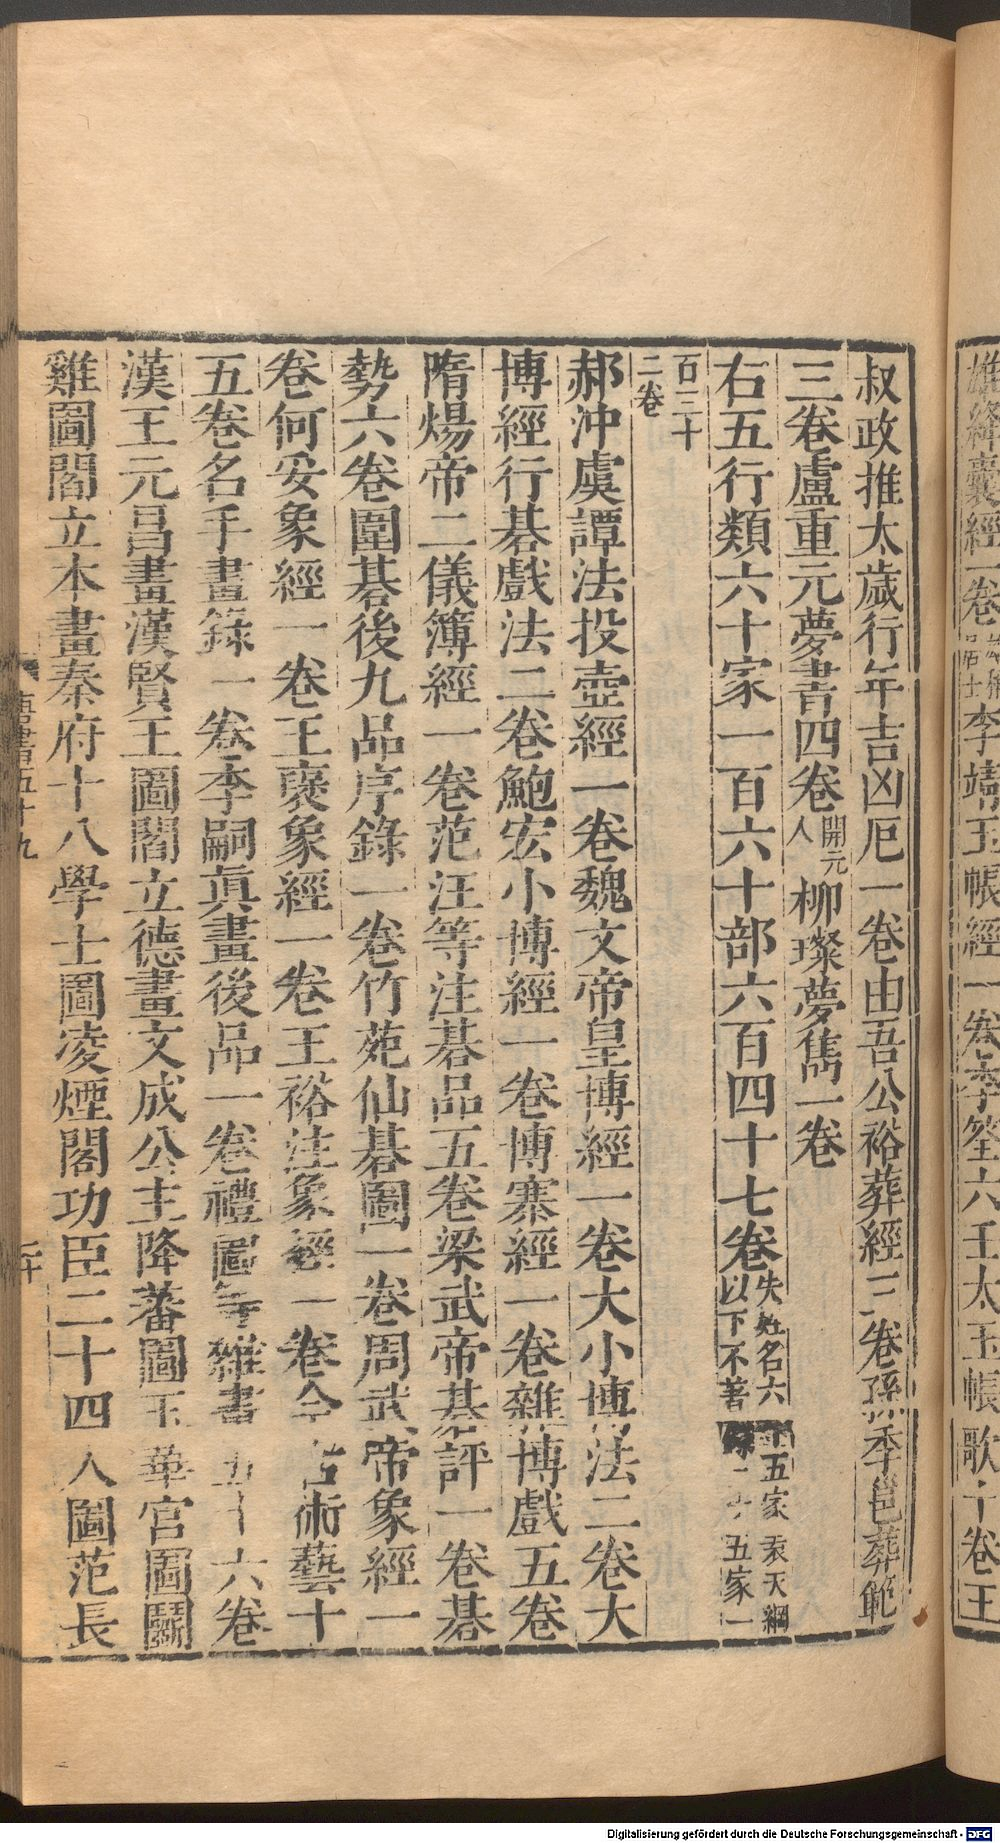 叔政推太歲行年吉凶厄一卷由吾公裕葬經三卷孫季邕葬範
三卷盧重元夢書四卷開元人柳璨夢雋一卷
右五行類六十家一百六十部六百四十七卷失姓名六十五家袁天綱以下不著錄二十五家一
百三十二卷
郝沖虞譚法投壺經一卷魏文帝皇博經一卷大小博法二卷大
博經行棊戲法二卷鮑宏小博經一卷博塞經一卷雜博戲五卷
隋煬帝二儀簿經一卷范汪等注棊品五卷梁武帝棊評一卷棊
勢六卷圍棊後九品序錄一卷竹苑仙棊圖一卷周武帝象經一
卷何妥象經一卷王裒象經一卷王裕注象經一卷今古術藝十
五卷名手畫錄一卷李嗣真畫後品一卷禮圖等雜書五十六卷
漢王元昌畫漢賢王圖閻立德畫文成公主降蕃圖玉華宮圖鬬
雞圖閻立本畫秦府十八學士圖凌煙閣功臣二十四人圖范長
唐書五十九
二十
雄絳囊經一卷李靖玉帳經一卷李筌六壬太玉帳歌十卷王
Digitalisierung gefördert durch die Deutsche Forschungsgemeinschaft - DFG